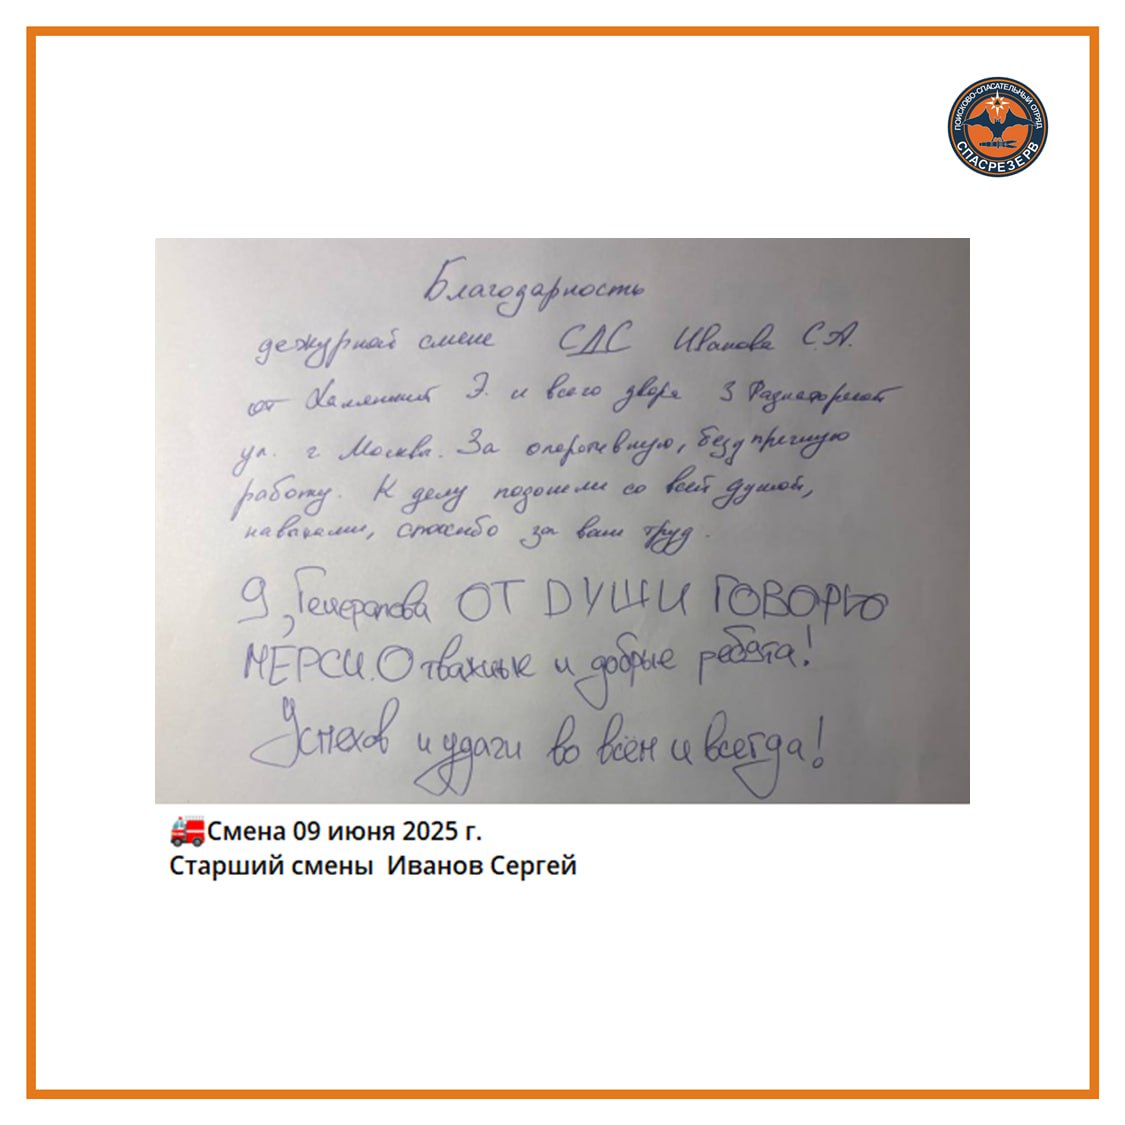 ПОИСКОВО-СПАСАТЕЛЬНЫЙ ОТРЯД
СПАСРЕЗЕРВ
Благодарность
дежурной смене СДС Иванова С.А.
от Э. и всего двора 3
ул. г Москва. За оперативную, бездпречную
работу. К делу подошли со всей душой,
навыками, спасибо за ваш труд.
Я, Генералова ОТ ДУШИ ГОВОРЮ
МЕРСИ. Отважные и добрые ребята!
Успехов и удачи во всём и всегда!
Смена 09 июня 2025 г.
Старший смены Иванов Сергей